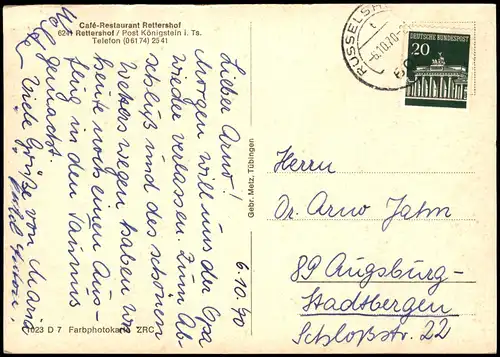 Café-Restaurant Rettershof
6241 Rettershof / Post Königstein i. Ts.
Telefon (06174) 2541
6.10.70
Lieber Arno!
Morgen will uns der Opa
wieder verlassen. Zum Ab-
schluß und des schönen
Wetters wegen haben wir
heute noch einen Aus-
flug in den Taunus
gemacht.
Viele Grüße von Maria
Gebr. Metz, Tübingen
1023 D 7 Farbphotokarte ZRC
RÜSSELSHEIM
-6.10.70
DEUTSCHE BUNDESPOST
20
Herrn
Dr. Arno Jahn
89 Augsburg-
Stadtbergen
Schloßstr. 22